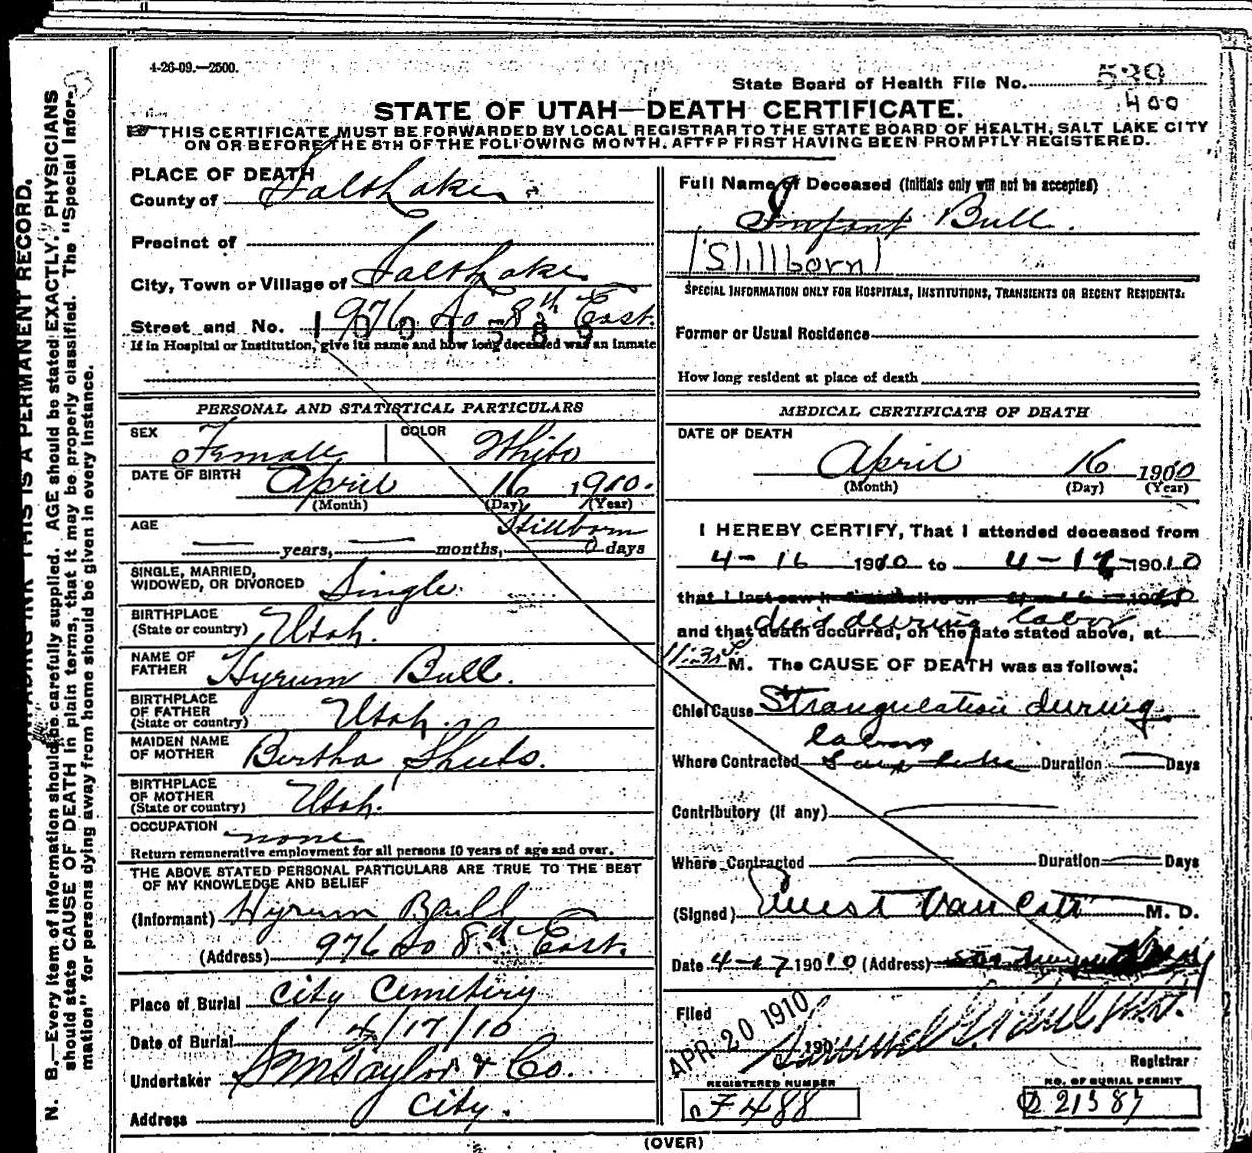 4-26-09.—2500.
State Board of Health File No. 539
400
STATE OF UTAH—DEATH CERTIFICATE.
THIS CERTIFICATE MUST BE FORWARDED BY LOCAL REGISTRAR TO THE STATE BOARD OF HEALTH, SALT LAKE CITY
ON OR BEFORE THE 5TH OF THE FOLLOWING MONTH, AFTER FIRST HAVING BEEN PROMPTLY REGISTERED.
N. B.—Every item of information should be carefully supplied. AGE should be stated EXACTLY. PHYSICIANS
should state CAUSE OF DEATH in plain terms, that it may be properly classified. The "Special Infor-
mation" for persons dying away from home should be given in every instance.
THIS IS A PERMANENT RECORD.
PLACE OF DEATH
County of Salt Lake
Precinct of
City, Town or Village of Salt Lake
Street and No. 976 So 8th East.
If in Hospital or Institution, give its name and how long deceased was an inmate
PERSONAL AND STATISTICAL PARTICULARS
SEX Female COLOR White
DATE OF BIRTH April 16 1910.
(Month) (Day) (Year)
AGE Stillborn
years, months, 0 days
SINGLE, MARRIED,
WIDOWED, OR DIVORCED Single.
BIRTHPLACE
(State or country) Utah.
NAME OF
FATHER Hyrum Bull.
BIRTHPLACE
OF FATHER
(State or country) Utah.
MAIDEN NAME
OF MOTHER Bertha Sheets.
BIRTHPLACE
OF MOTHER
(State or country) Utah.
OCCUPATION none
Return remunerative employment for all persons 10 years of age and over.
THE ABOVE STATED PERSONAL PARTICULARS ARE TRUE TO THE BEST
OF MY KNOWLEDGE AND BELIEF
(Informant) Hyrum Bull
(Address) 976 So 8th East.
Place of Burial City Cemetery
Date of Burial 4/17/10
Undertaker S M Taylor & Co.
Address City.
Full Name of Deceased (Initials only will not be accepted)
Infant Bull.
(Stillborn)
SPECIAL INFORMATION ONLY FOR HOSPITALS, INSTITUTIONS, TRANSIENTS OR RECENT RESIDENTS:
Former or Usual Residence
How long resident at place of death
MEDICAL CERTIFICATE OF DEATH
DATE OF DEATH
April 16 1910
(Month) (Day) (Year)
I HEREBY CERTIFY, That I attended deceased from
4-16 1910 to 4-17 1910
that I last saw h alive on 4-16 1910
died during labor
and that death occurred, on the date stated above, at
M. The CAUSE OF DEATH was as follows:
Chief Cause Strangulation during
labor
Where Contracted Duration Days
Contributory (if any)
Where Contracted Duration Days
(Signed) Ernest Van Cott M. D.
Date 4-17 1910 (Address)
Filed APR 20 1910 190
Registrar
REGISTERED NUMBER
F488
NO. OF BURIAL PERMIT
D 21387
(OVER)